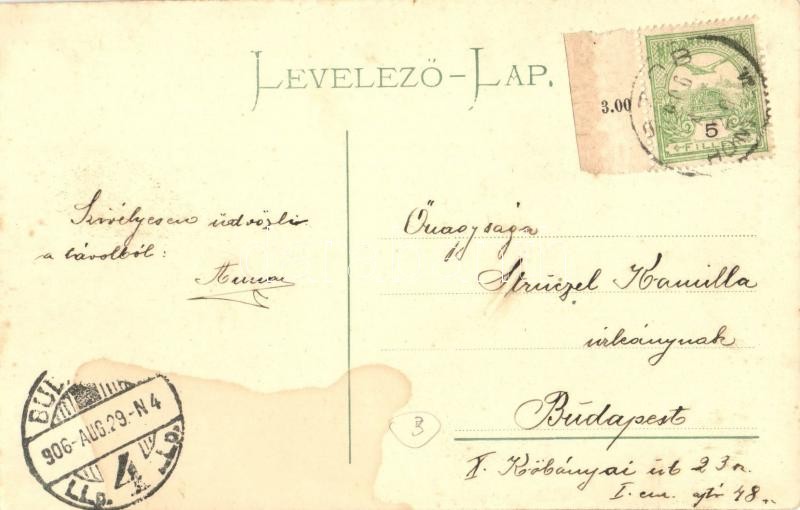 LEVELEZŐ-LAP.
3.00
5
FILLÉR
Szívélyesen üdvözli
a távolból:
Őnagysága
Strüczel Kamilla
úrhánynak
Budapest
X. Kőbányai út 23
I. em. ajtó 48
BUD
906-AUG.29.-N4
4
I.Lp.
3